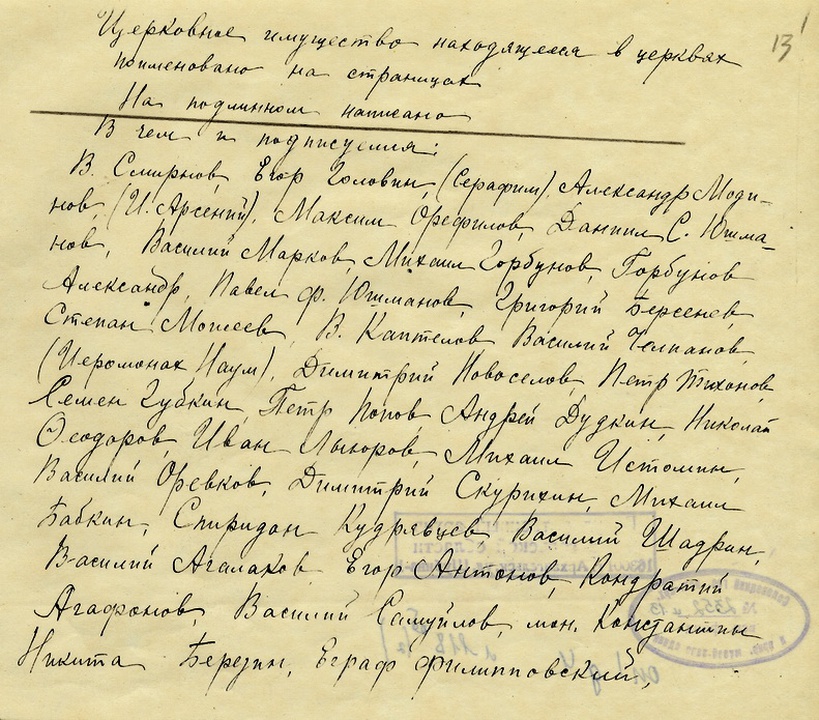 13
Церковное имущество находящееся в церквях
поименовано на страницах
На подлинном написано
В чем и подписуемся:
В. Смирнов, Егор Головин, (Серафим), Александр Моди-
нов, (И. Арсений), Максим Орефилов, Даниил С. Юшма-
нов, Василий Марков, Михаил Горбунов, Горбунов
Александр, Павел Ф. Юшманов, Григорий Берсенев,
Степан Мошеев, В. Каптелов Василий Челпанов,
(Иеромонах Наум), Димитрий Новоселов, Петр Тихонов,
Семен Губкин, Петр Попов, Андрей Дудкин, Николай
Феодоров, Иван Лыюров, Михаил Истомин,
Василий Оревков, Димитрий Скурихин, Михаил
Бабкин, Спиридон Кудрявцев Василий Шадрин,
Василий Агалаков, Егор Антонов, Кондратий
Агафонов, Василий Самуйлов, мон. Константин
Никита Березин, Еграф Филипповский,